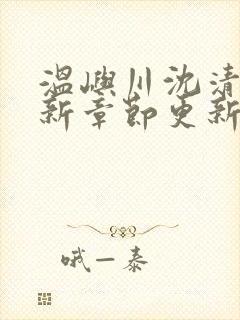 温屿川沈清
新章节更新
哦一泰